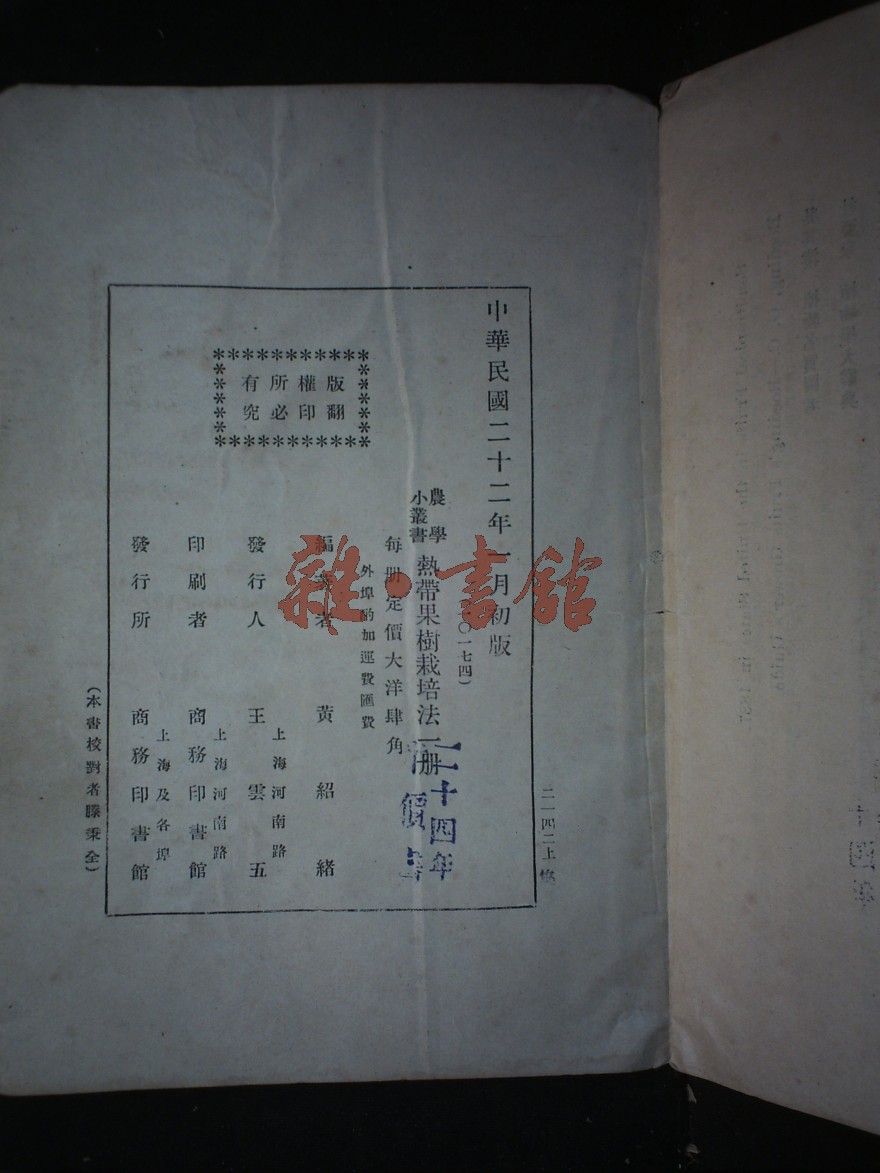 中華民國二十二年一月初版
(一〇一七四)
農學
小叢書
熱帶果樹栽培法一冊
每冊定價大洋肆角
外埠酌加運費匯費
版權所有
翻印必究
編著者 黃紹緒
發行人 王雲五
上海河南路
印刷者 商務印書館
上海河南路
發行所 商務印書館
上海及各埠
(本書校對者滕秉全)
二一四二上
二十四年
價書
雜·書館
十四年